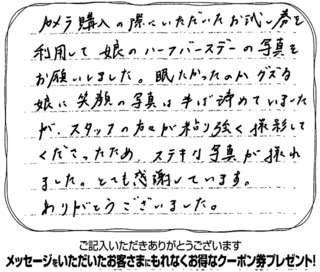 カメラ購入の際にいただいたお試し券を
利用して娘のハーフバースデーの写真を
お願いしました。眠たかったのかグズる
娘に笑顔の写真は半ば諦めていました
が、スタッフの方々が粘り強く撮影して
くださったため、ステキな写真が撮れ
ました。とても感謝しています。
ありがとうございました。
ご記入いただきありがとうございます
メッセージをいただいたお客さまにもれなくお得なクーポン券プレゼント!